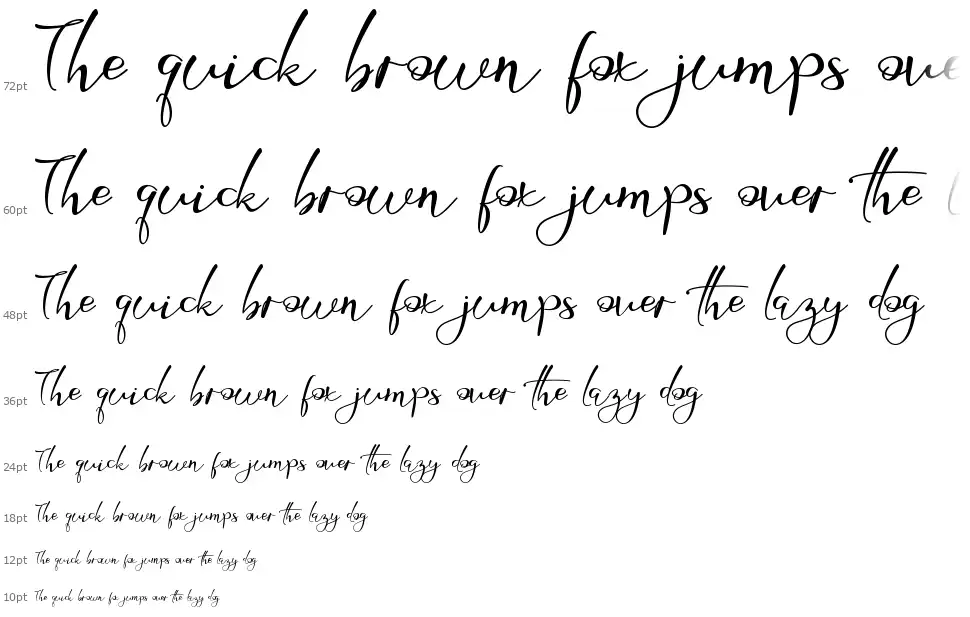 72pt The quick brown fox jumps ove
60pt The quick brown fox jumps over the
48pt The quick brown fox jumps over the lazy dog
36pt The quick brown fox jumps over the lazy dog
24pt The quick brown fox jumps over the lazy dog
18pt The quick brown fox jumps over the lazy dog
12pt The quick brown fox jumps over the lazy dog
10pt The quick brown fox jumps over the lazy dog